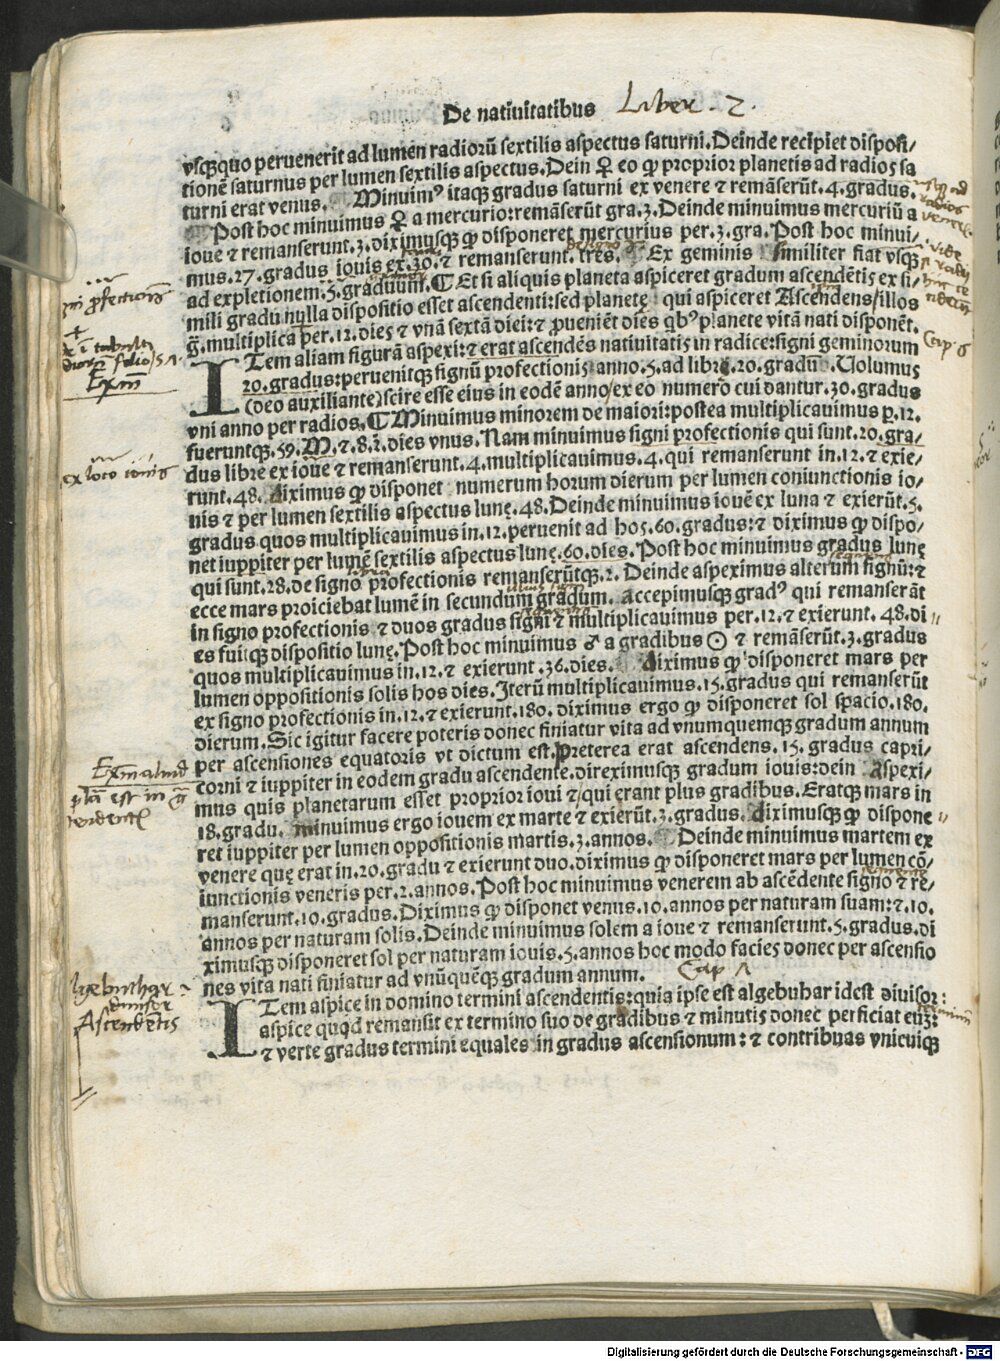 De natiuitatibus Liber . 2.
vsq̄quo peruenerit ad lumen radiorū sextilis aspectus saturni. Deinde recipiet dispositi/
tionē saturnus per lumen sextilis aspectus. Dein ♀ eo ꝙ proprior planetis ad radios sa
turni erat venus. Minuimꝰ itaqꝫ gradus saturni ex venere ⁊ remāserūt .4. gradus.
Post hoc minuimus ♀ a mercurio: remāserūt gra. 3. Deinde minuimus mercuriū a
ioue ⁊ remanserunt .3. diximusqꝫ ꝙ disponeret mercurius per .3. gra. Post hoc minui/
mus .27. gradus iouis ex .30. ⁊ remanserunt tres. Ex geminis Similiter fiat vsqꝫ
ad expletionem .5. graduum. ¶ Et si aliquis planeta aspiceret gradum ascendētis ex si/
mili gradu nulla dispositio esset ascendenti: sed planetę qui aspiceret Ascendens/illos
g̃. multiplica per .12. dies ⁊ vnā sextā diei: ⁊ ꝓueniēt dies qbꝰ planete vitā nati disponēt.
ITem aliam figurā aspexi: ⁊ erat ascendēs natiuitatis in radice: signi geminorum
20. gradus: peruenitqꝫ signū profectionis anno .5. ad librę .20. gradū. Uolumus
(deo auxiliante) scire esse eius in eodē anno/ex eo numero cui dantur .30. gradus
vni anno per radios. ¶ Minuimus minorem de maiori: postea multiplicauimus p̱ .12.
fueruntqꝫ .59. M̄. ⁊ .8. 2̄. dies vnus. Nam minuimus signi profectionis qui sunt .20. gra/
dus libre ex ioue ⁊ remanserunt .4. multiplicauimus .4. qui remanserunt in .12. ⁊ exie/
runt .48. diximus ꝙ disponet numerum horum dierum per lumen coniunctionis io/
nis ⁊ per lumen sextilis aspectus lunę .48. Deinde minuimus iouē ex luna ⁊ exierūt .5.
gradus quos multiplicauimus in .12. peruenit ad hos .60. gradus: ⁊ diximus ꝙ dispo/
net iuppiter per lumē sextilis aspectus lunę .60. dies. Post hoc minuimus gradus lunę
qui sunt .28. de signo profectionis remanserūtqꝫ .2. Deinde aspeximus alterum signū: ⁊
ecce mars proiciebat lumē in secundum gradum. Accepimusqꝫ gradꝰ qui remanserāt
in signo profectionis ⁊ duos gradus signi ⁊ multiplicauimus per .12. ⁊ exierunt .48. di
es fuitqꝫ dispositio lunę. Post hoc minuimus ♂ a gradibus ☉ ⁊ remāserūt .3. gradus
quos multiplicauimus in .12. ⁊ exierunt .36. dies. Diximus ꝙ disponeret mars per
lumen oppositionis solis hos dies. Iterū multiplicauimus .15. gradus qui remanserūt
ex signo profectionis in .12. ⁊ exierunt .180. diximus ergo ꝙ disponeret sol spacio .180.
dierum. Sic igitur facere poteris donec finiatur vita ad vnumquemqꝫ gradum annum
per ascensiones equatoris vt dictum est. Preterea erat ascendens .15. gradus capri/
corni ⁊ iuppiter in eodem gradu ascendente. direximusqꝫ gradum iouis: dein Aspexi/
mus quis planetarum esset proprior ioui ⁊ qui erant plus gradibus. Eratqꝫ mars in
18. gradu. minuimus ergo iouem ex marte ⁊ exierūt .3. gradus. Diximusqꝫ ꝙ dispone
ret iuppiter per lumen oppositionis martis .3. annos. Deinde minuimus martem ex
venere quę erat in .20. gradu ⁊ exierunt duo. diximus ꝙ disponeret mars per lumen cō/
iunctionis veneris per .2. annos. Post hoc minuimus venerem ab ascēdente signo ⁊ re/
manserunt .10. gradus. Diximus ꝙ disponet venus .10. annos per naturam suam: ⁊ .10.
annos per naturam solis. Deinde minuimus solem a ioue ⁊ remanserunt .5. gradus. di
ximusqꝫ disponeret sol per naturam iouis .5. annos hoc modo facies donec per ascensio
nes vita nati finiatur ad vnūquēqꝫ gradum annum.
ITem aspice in domino termini ascendentis: quia ipse est algebuhar idest diuisor:
aspice quod remansit ex termino suo de gradibus ⁊ minutis donec perficiat eū:
⁊ verte gradus termini equales in gradus ascensionum: ⁊ contribuas vnicuiqꝫ
Cap. 6
ex loco iouis
Ascendētis
Digitalisierung gefördert durch die Deutsche Forschungsgemeinschaft - DFG